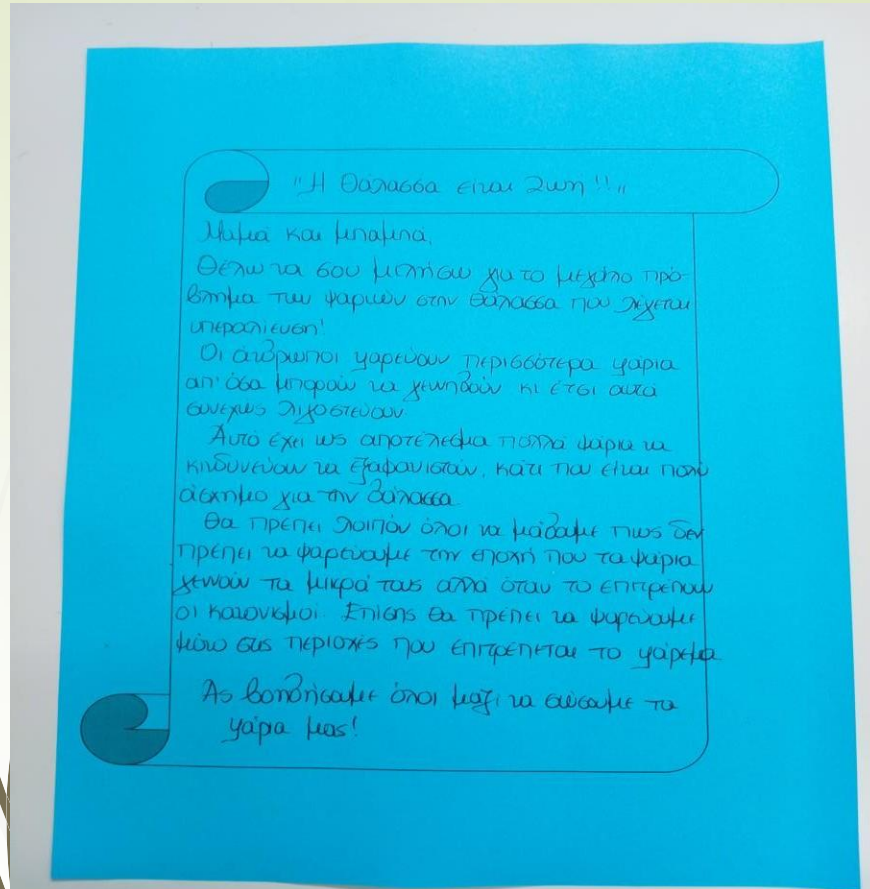 "Η θάλασσα είναι ζωή!!"
Μαμά και μπαμπά,
Θέλω να σου μιλήσω για το μεγάλο πρό-
βλημα των ψαριών στην θάλασσα που λέγεται
υπεραλίευση!
Οι άνθρωποι ψαρεύουν περισσότερα ψάρια
απ' όσα μπορούν να γεννηθούν κι έτσι αυτά
συνεχώς λιγοστεύουν
Αυτό έχει ως αποτέλεσμα πολλά ψάρια να
κινδυνεύουν να εξαφανιστούν, κάτι που είναι πολύ
άσχημο για την θάλασσα
Θα πρέπει λοιπόν όλοι να μάθουμε πως δεν
πρέπει να ψαρεύουμε την εποχή που τα ψάρια
γεννούν τα μικρά τους αλλά όταν το επιτρέπουν
οι κανονισμοί. Επίσης θα πρέπει να ψαρεύουμε
μόνο στις περιοχές που επιτρέπεται το ψάρεμα
Ας βοηθήσουμε όλοι μαζί να σώσουμε τα
ψάρια μας!